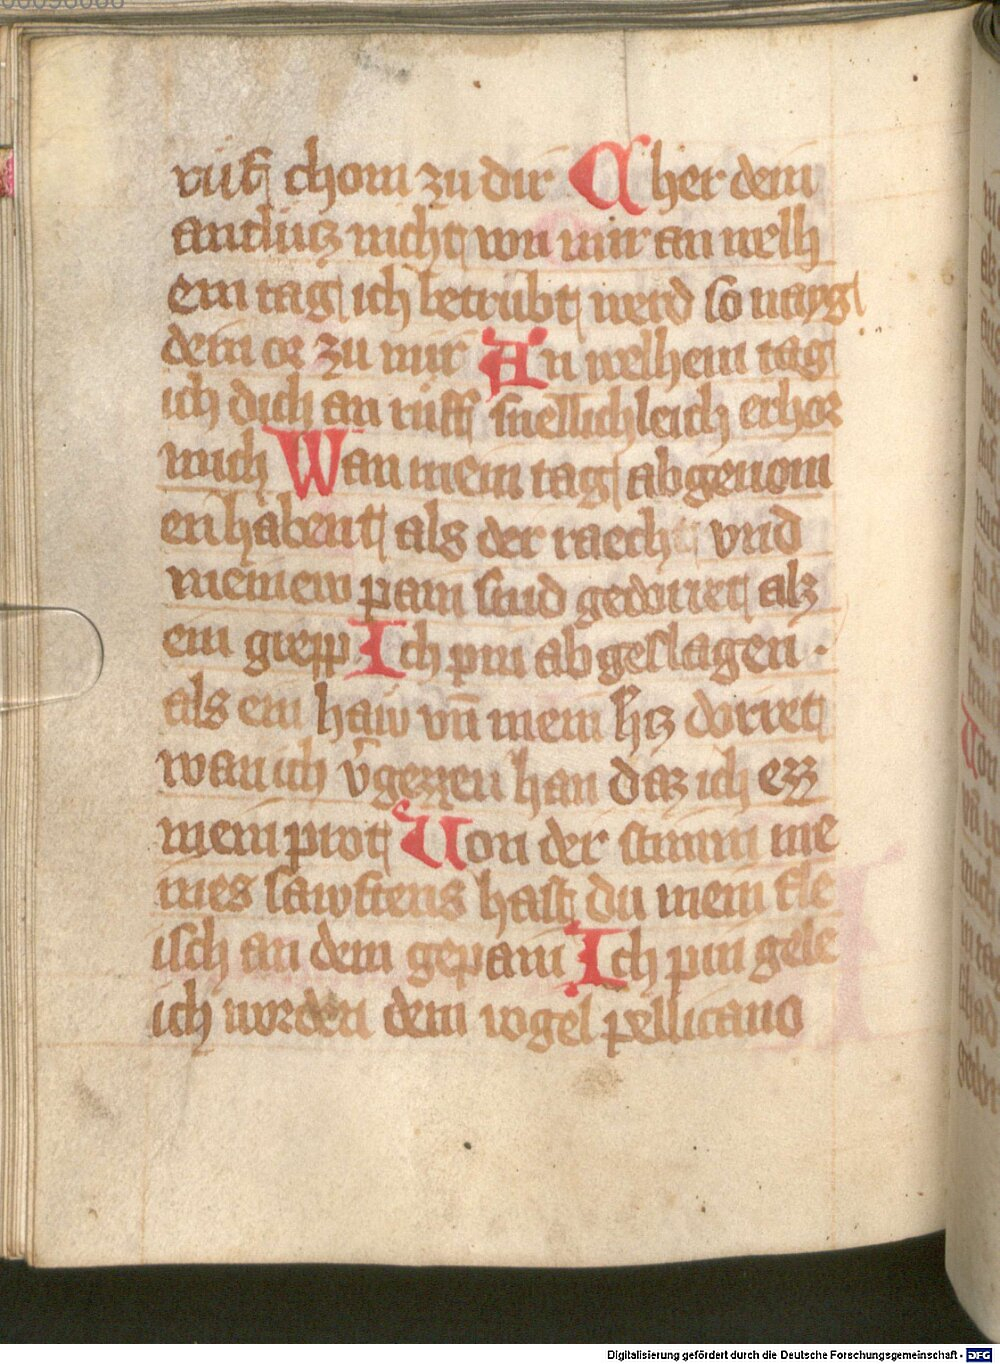 rüff chom zu dir Cher dein
antlutz nicht von mir an welh
em tag ich betrubt werd so nayg
dein or zu mir An welhem tag
ich dich an rüff snellichleich erhor
mich Wan mein tag ab genom
en habent als der raech vnd
meinew pain sind gedorret alz
ein grepp Ich pin ab geslagen ·
als ein haiv vn̄ mein hʼtz dorret
wan ich vʼgezzen han daz ich ezz
mein prot Von der stimm me
ines sawftens hast du mein fle
isch an dem gepain Ich pin gele
ich worden dem vogel pellicano
Digitalisierung gefördert durch die Deutsche Forschungsgemeinschaft - DFG